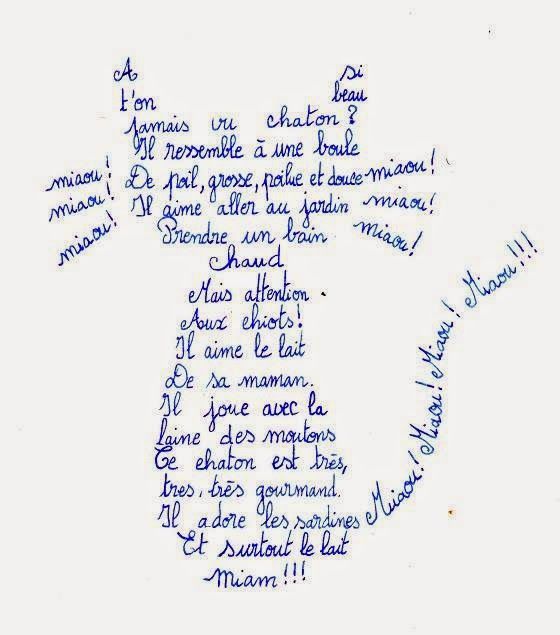 A si
t'on beau
jamais vu chaton ?
Il ressemble à une boule
miaou! De poil, grosse, poilue et douce miaou!
miaou! Il aime aller au jardin miaou!
miaou! Prendre un bain miaou!
Chaud
Mais attention.
Aux chiots!
Il aime le lait
De sa maman.
Il joue avec la
laine des moutons
Ce chaton est très,
tres, très gourmand.
Il adore les sardines Miaou! Miaou! Miaou! Miaou! Miaou!!!
Et surtout le lait
Miam!!!